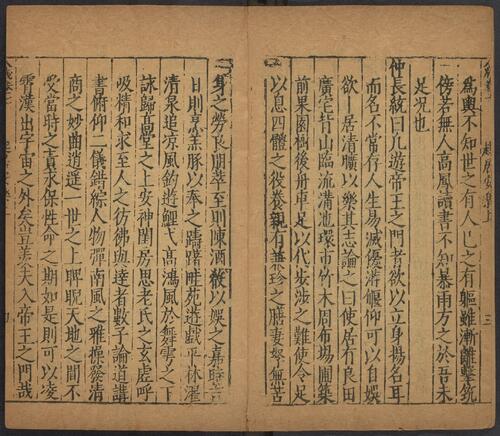 爲輿不知世之有人己之有軀雖漸離擊筑
傍若無人高鳳讀書不知暴雨方之於吾未
足况也
仲長統曰凡遊帝王之門者欲以立身揚名耳
而名不常存人生易滅優游偃仰可以自娛
欲卜居清曠以樂其志論之曰使居有良田
廣宅背山臨流溝池環帀竹木周布塲圃築
前果園樹後舟車足以代步涉之難使令足
以息四體之役養親有兼珍之膳妻孥無苦
身之勞良朋萃至則陳酒殽以娛之嘉時吉
日則烹羔豚以奉之躊躇畦苑遊戲平林濯
清泉追凉風釣遊鯉弋高鴻風於舞雩之下
詠歸高堂之上安神閨房思老氏之玄虛呼
吸精和求至人之彷彿與達者數子論道講
書俯仰二儀錯綜人物彈南風之雅操發清
商之妙曲逍遥一世之上睥睨天地之間不
受當時之責永保性命之期如是則可以凌
霄漢出宇宙之外矣豈羡夫入帝王之門哉